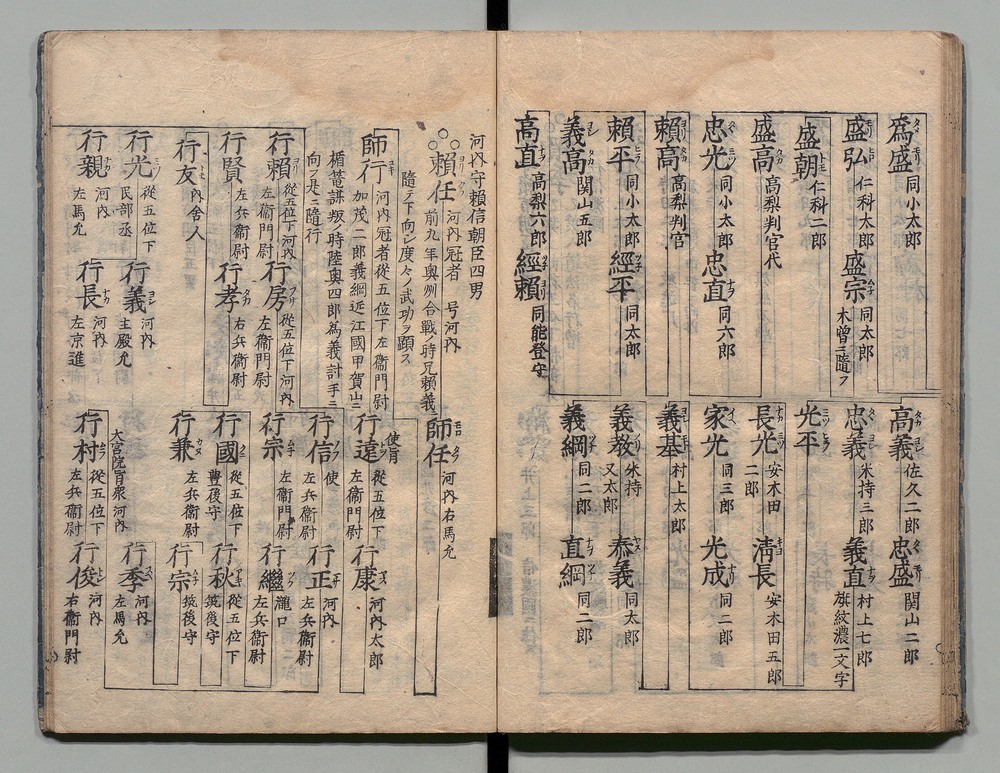 為盛 同小太郎
盛弘 仁科太郎
盛宗 同太郎
木曽ニ隨フ
盛朝 仁科二郎
盛高 高梨判官代
忠光 同小太郎
忠直 同六郎
賴高 高梨判官
賴平 同小太郎
經平 同太郎
義高 関山五郎
高直 高梨六郎
經賴 同能登守
高義 佐久二郎
忠盛 関山二郎
忠義 米持三郎
義直 村上七郎
旗紋濃一文字
光平
長光 安木田二郎
淸長 安木田五郎
家光 同三郎
光成 同二郎
義基 村上太郎
義教 米持又太郎
泰義 同太郎
義綱 同二郎
直綱 同二郎
河内守賴信朝臣四男
賴任 河内冠者 号河内
前九年奥州合戰ノ時兄賴義
隨テ下向シ度々ノ武功ヲ顯ス
師行 河内冠者從五位下左衞門尉
加茂二郎義綱近江國甲賀山ニ
楯篭謀叛ノ時陸奥四郎為義討手ニ
向フ是ニ隨行
行賴 從五位下河内
左衞門尉
行房 從五位下河内
左衞門尉
行賢 左兵衞尉
行孝 右兵衞尉
行友 内舍人
行光 從五位下
民部丞
行義 河内
主殿允
行親 河内
左馬允
行長 河内
左京進
師任 河内右馬允
行遠 使宣旨
從五位下
左衞門尉
行康 河内太郎
行信 使
左兵衞尉
行正 河内
左兵衞尉
行宗 左衞門尉
行繼 瀧口
左兵衞尉
行國 從五位下
豐後守
行秋 從五位下
筑後守
行兼 左兵衞尉
行宗 筑後守
大宮院官衆河内
行季 河内
左馬允
行村 從五位下
左兵衞尉
行俊 河内
右衞門尉